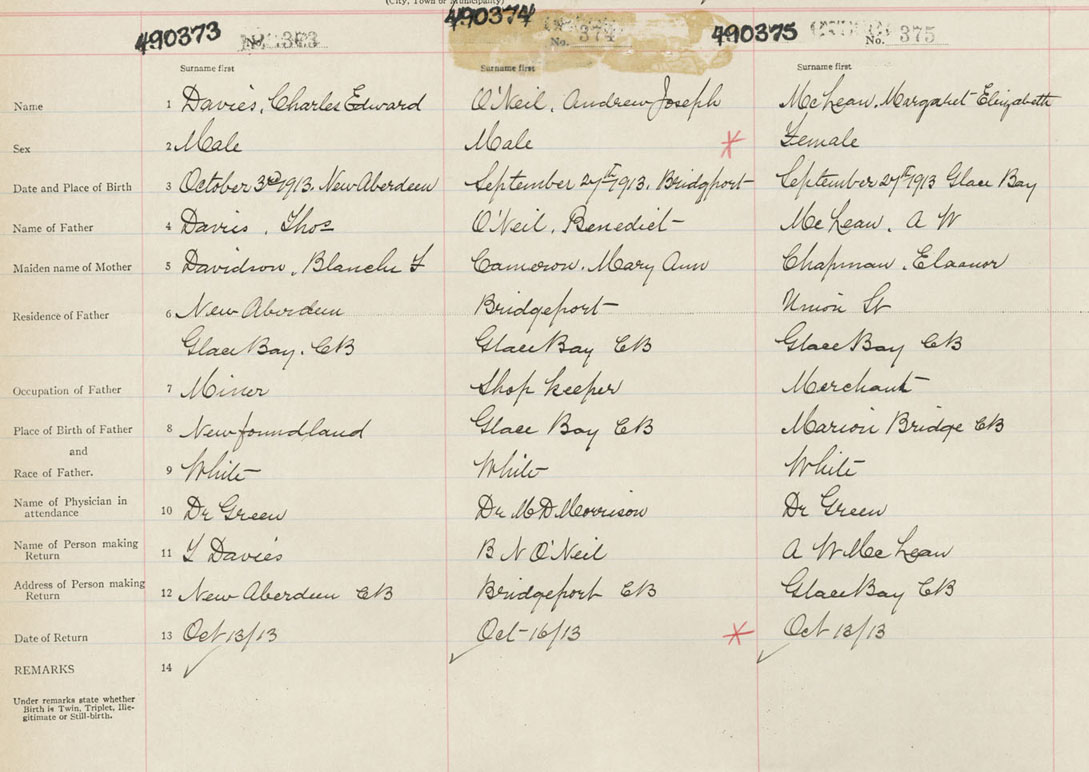 (City, Town or Municipality)
490373 No. 373 490374 No. 374 490375 No. 375
Surname first Surname first Surname first
Name 1 Davies, Charles Edward O'Neil, Andrew Joseph McLean, Margaret Elizabeth
Sex 2 Male Male Female
Date and Place of Birth 3 October 3rd 1913, New Aberdeen September 27th 1913, Bridgport September 27th 1913 Glace Bay
Name of Father 4 Davies, Thos O'Neil, Benedict McLean, A W
Maiden name of Mother 5 Davidson, Blanche F Cameron, Mary Ann Chapman, Elaanor
Residence of Father 6 New Aberdeen Bridgeport Union St
Glace Bay, CB Glace Bay CB Glace Bay CB
Occupation of Father 7 Miner Shop keeper Merchant
Place of Birth of Father 8 Newfoundland Glace Bay CB Marion Bridge CB
and
Race of Father. 9 White White White
Name of Physician in attendance 10 Dr Green Dr M D Morrison Dr Green
Name of Person making Return 11 T Davies B N O'Neil A W McLean
Address of Person making Return 12 New Aberdeen CB Bridgeport CB Glace Bay CB
Date of Return 13 Oct 13/13 Oct 16/13 Oct 13/13
REMARKS 14
Under remarks state whether
Birth is Twin, Triplet, Ille-
gitimate or Still-birth.